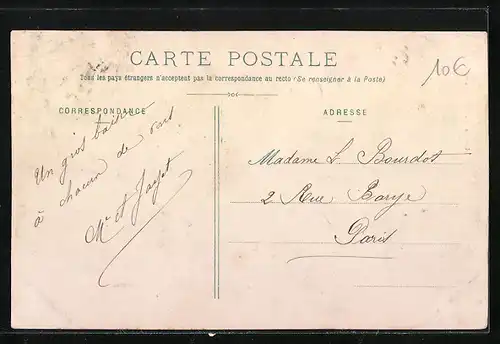 CARTE POSTALE
Tous les pays étrangers n'acceptent pas la correspondance au recto (Se renseigner à la Poste)
CORRESPONDANCE
Un gros baiser
à chacun de vous
M. et
ADRESSE
Madame L. Bourdot
2 Rue Barye
Paris
10€